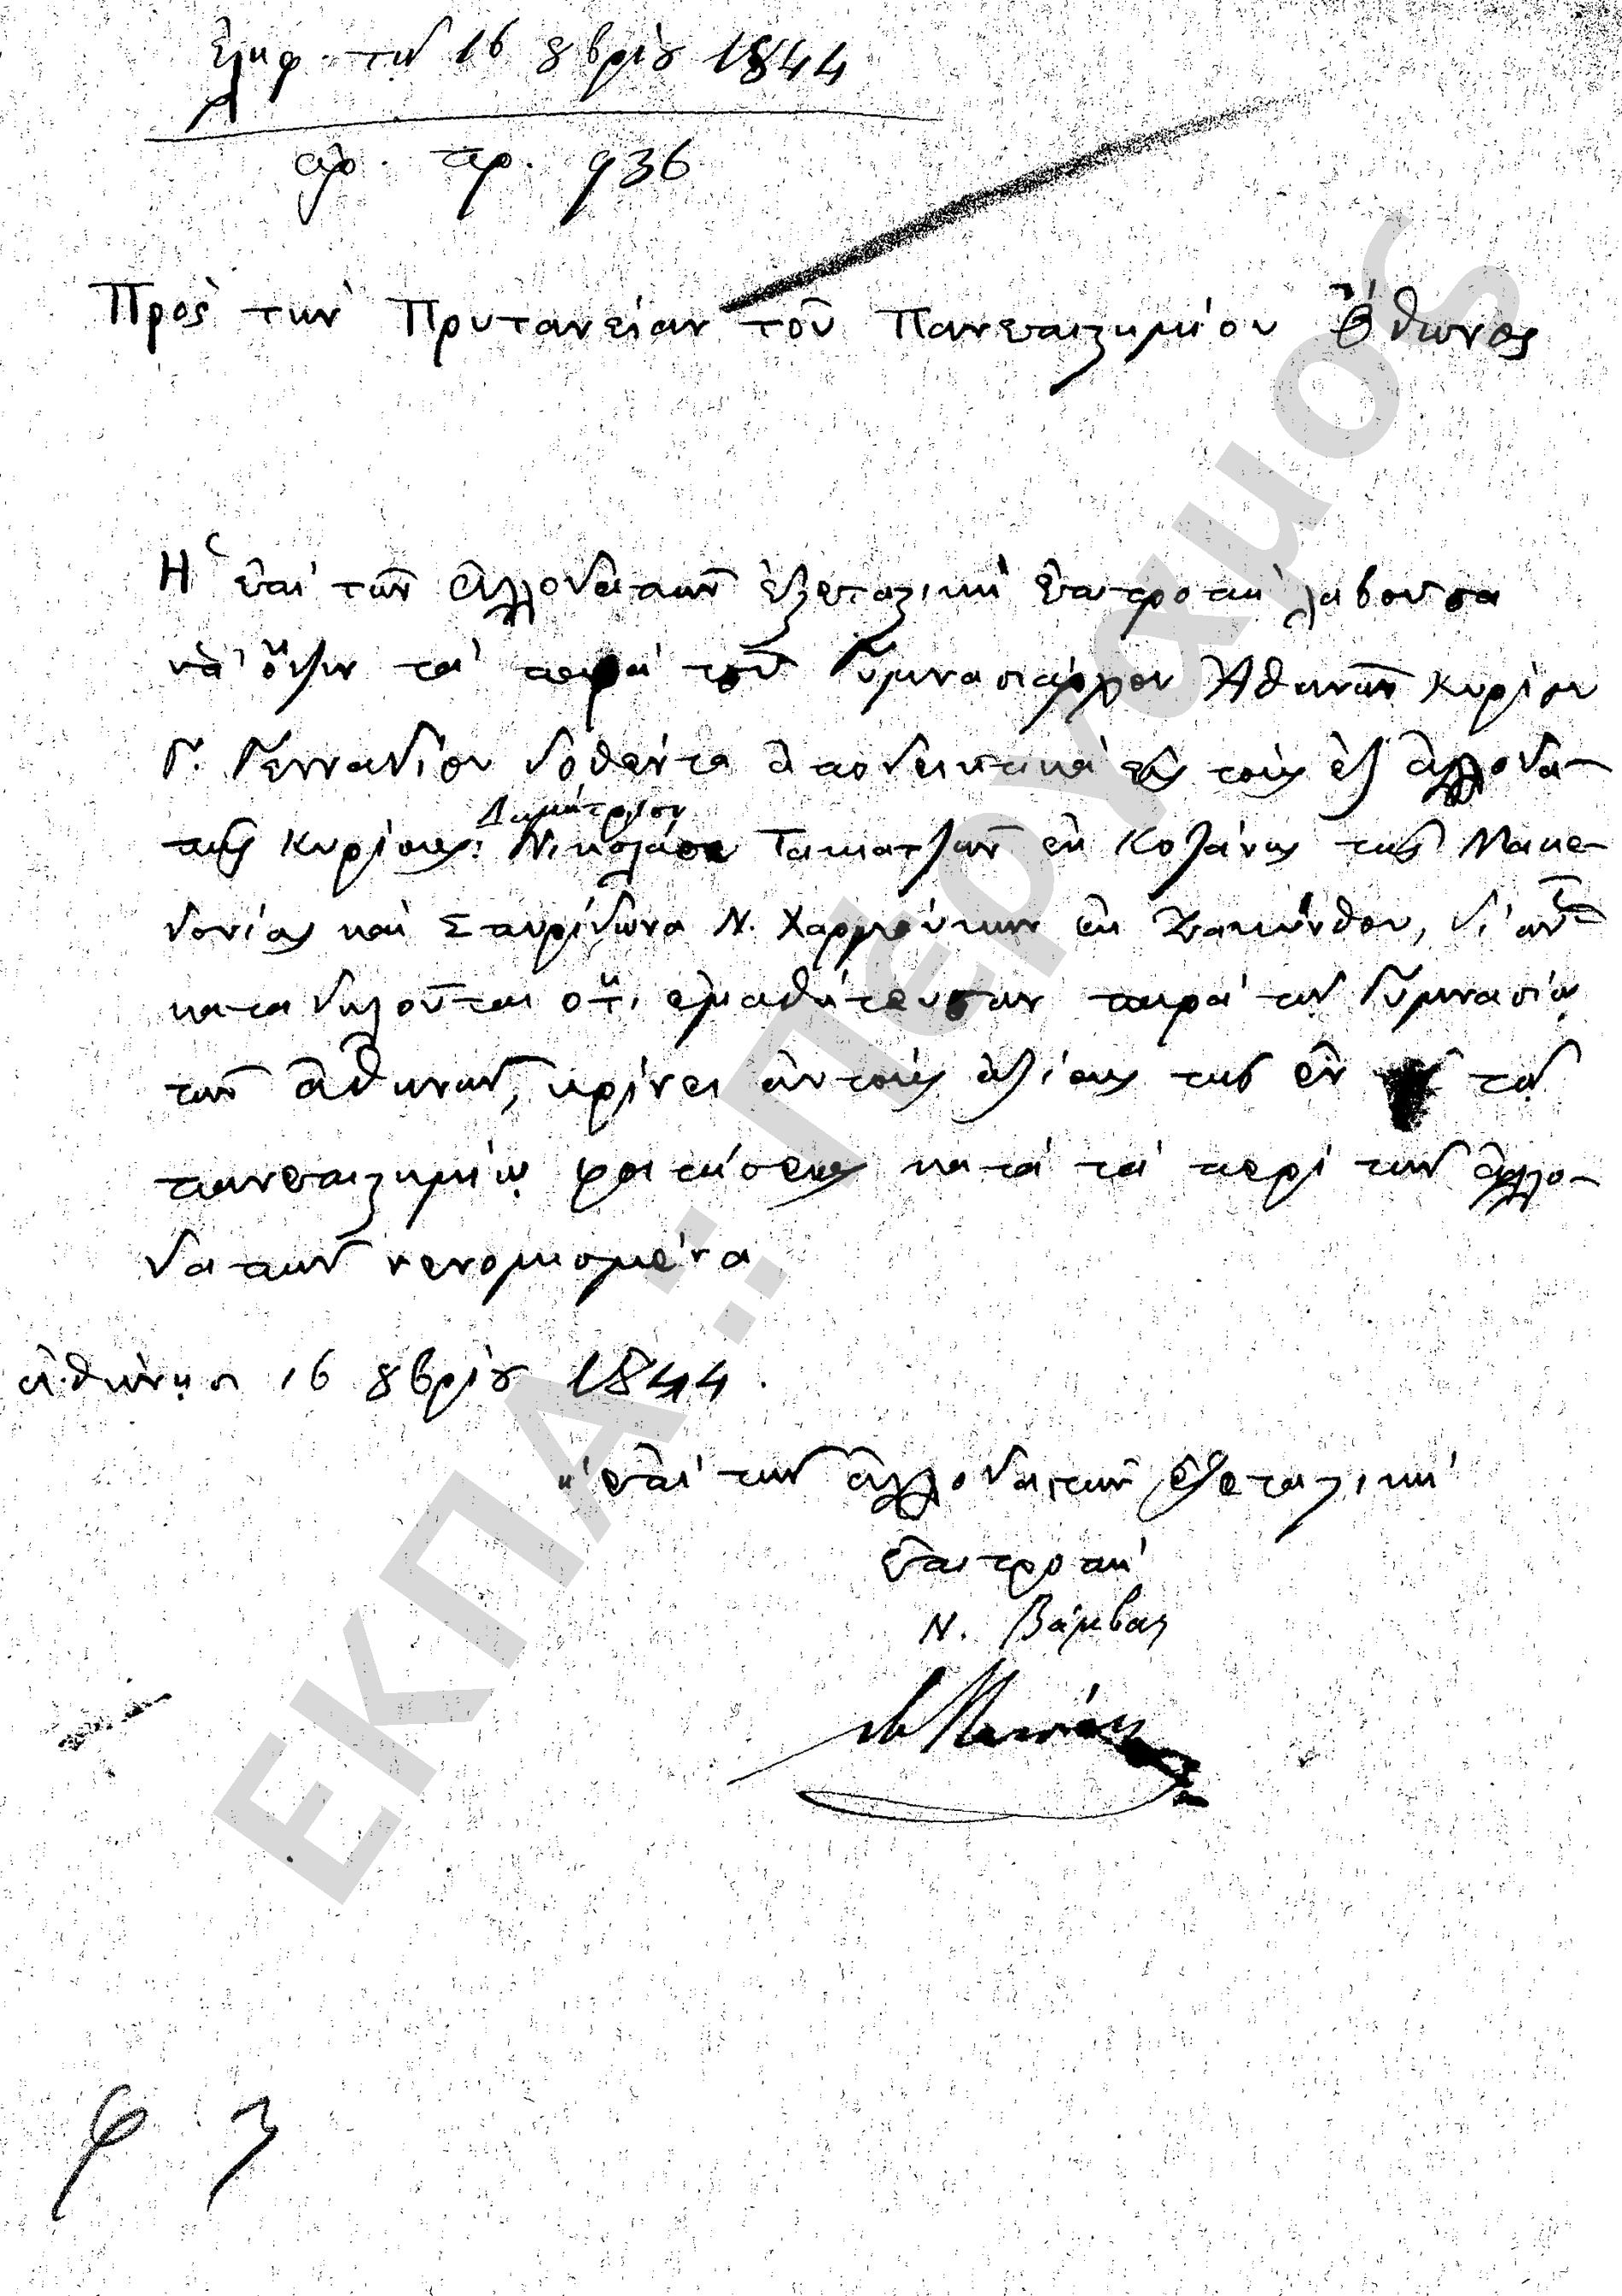 ἐλήφ. τῇ 16 8βρίου 1844
ἀρ. πρ. 936
Πρὸς τὴν Πρυτανείαν τοῦ Πανεπιστημίου Ὄθωνος
Ἡ ἐπὶ τῶν ἀλλοδαπῶν ἐξεταστικὴ ἐπιτροπὴ λαβοῦσα
ὑπ' ὄψιν τὰ παρὰ τοῦ Γυμνασιάρχου Ἀθηνῶν Κυρίου
Γ. Γενναδίου δοθέντα ἀποδεικτικὰ εἰς τοὺς ἐξ ἀλλοδα-
πῆς Κυρίους: Δημήτριον Νικολάου Τακιατζῆν ἐκ Κοζάνης τῆς Μακε-
δονίας καὶ Σπυρίδωνα Ν. Χαρμούκην ἐκ Ζακύνθου, δι' ὧν
καταδηλοῦται ὅτι ἐμαθήτευσαν παρὰ τῷ Γυμνασίῳ
τῶν Ἀθηνῶν, κρίνει αὐτοὺς ἀξίους τῆς ἐν τῷ
πανεπιστημίῳ φοιτήσεως κατὰ τὰ περὶ τῶν ἀλλο-
δαπῶν νενομισμένα
ἀθήνησι 16 8βρίου 1844.
ἡ ἐπὶ τῶν ἀλλοδαπῶν ἐξεταστικὴ
ἐπιτροπὴ
Ν. Βάμβας
ΕΚΠΑ:: Πέργαμος